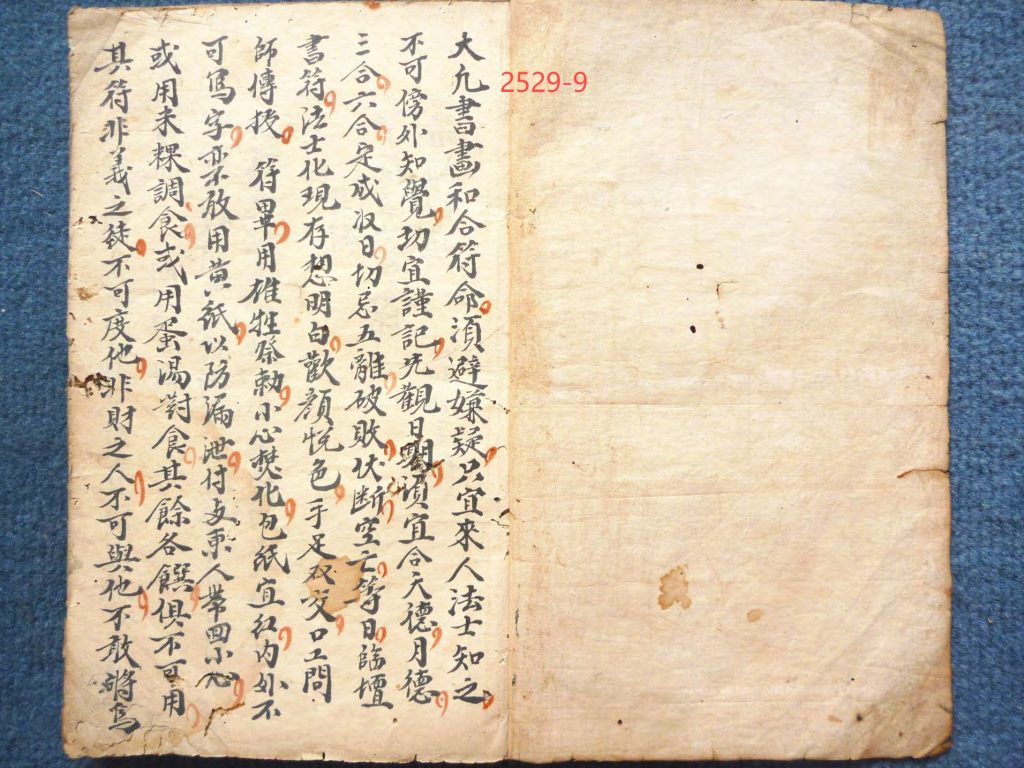 大凢書畫和合符命湏避嫌疑只宜來人法士知之
不可傍外知覺切宜謹記先觀日期湏宜合天德月德
三合六合定成収日切忌五離破敗伏断空亡等日臨壇
書符法士化現存想明白歡顔悦色手足双交口工問
師傳授 符畢用雄牲祭勅小心焚化包紙宜紅内外不
可寫字亦不敢用黄紙以防漏泄付与東人帶回小心
或用末粿調食或用蛋湯對食其餘各饌俱不可用
其符非義之徒不可度他非財之人不可與他不敢將寫
2529-9